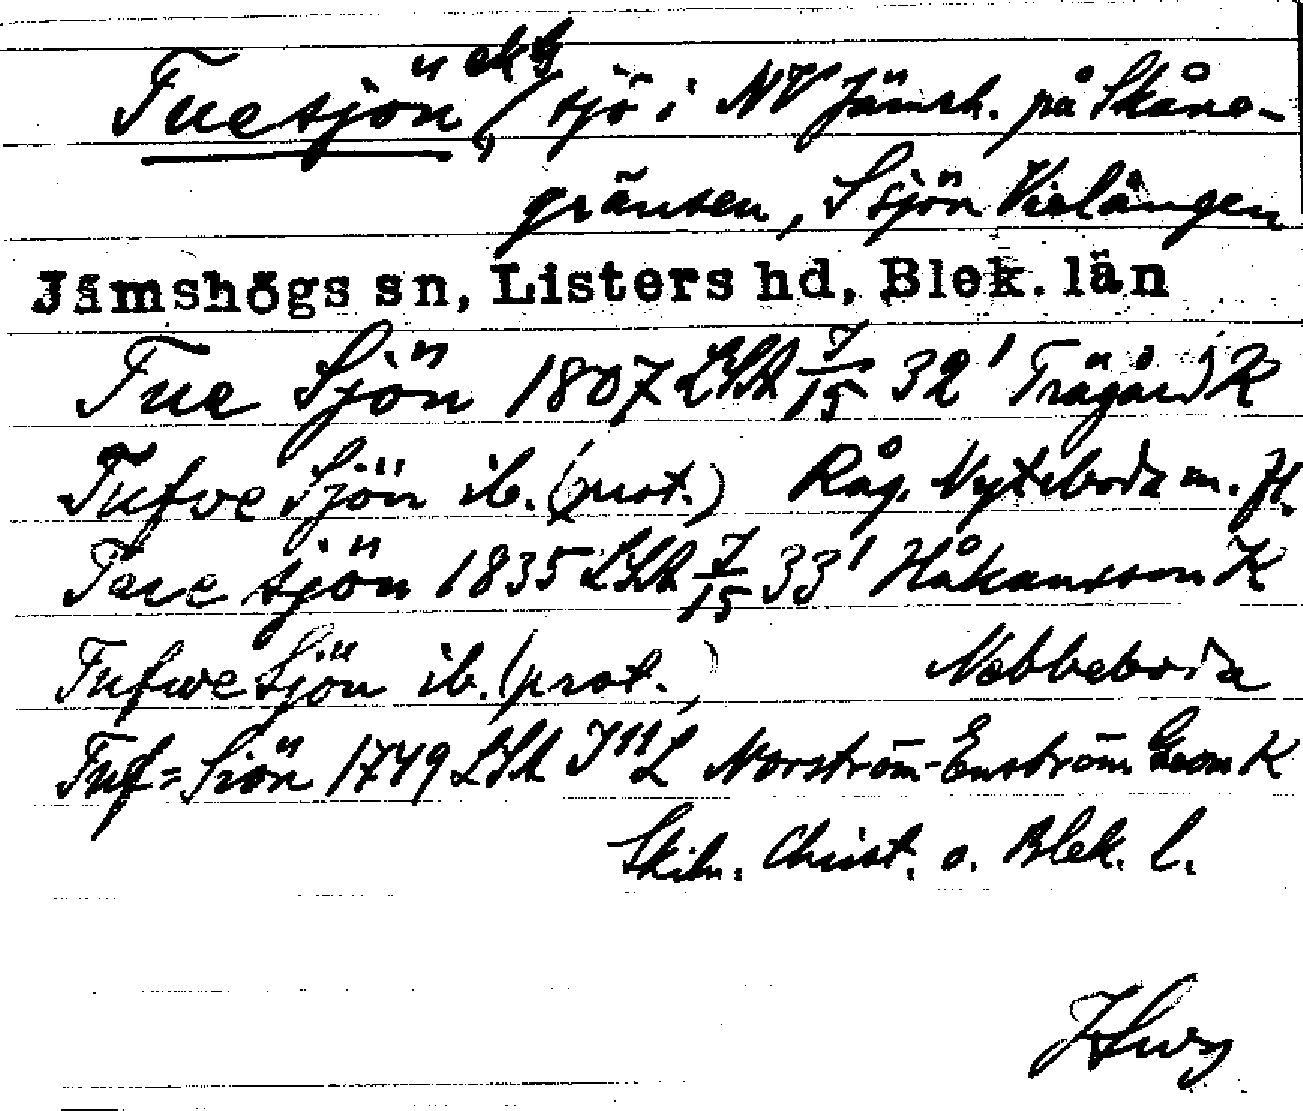 Tuesjön, ekg sjö i NV Jämsh. på Skåne-
gränsen, S sjön Vielången
Jämshögs sn, Listers hd, Blek. län
Tue Sjön 1807 LSA 7/15 32' Trägård K
Tufwe Sjön ib. (prot.) Råg. Nyteboda m. fl.
Tue sjön 1835 LSA 7/15 33' Håkansson K
Tufwe sjön ib. (prot.) Nebbeboda
Tuf= Siön 1749 LSA Norström-Enström Geom K
Skiln. Christ. o. Blek. l.